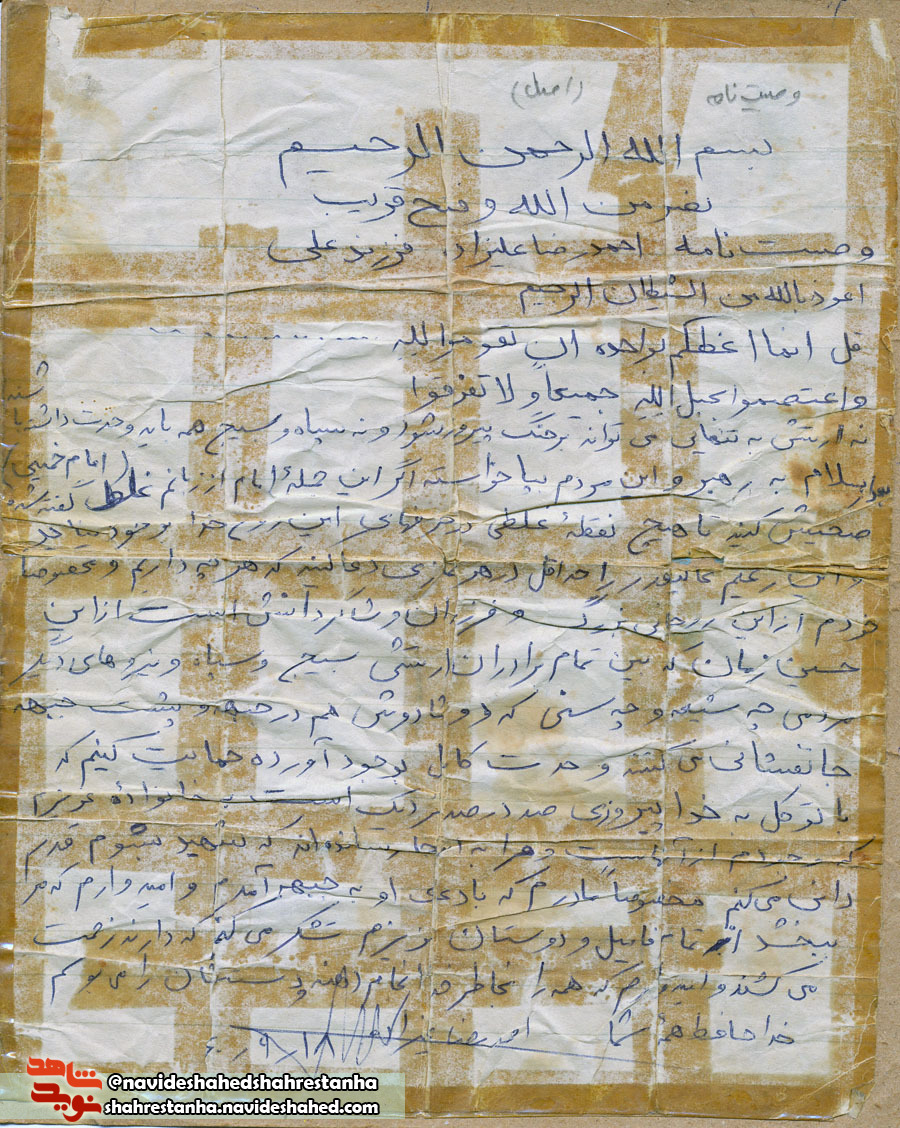 وصیت نامه (اصل)
بسم الله الرحمن الرحیم
نصر من الله و فتح قریب
وصیت نامه احمدرضا علیزاده فرزند علی
اعوذ بالله من الشیطان الرجیم
قل انما اعظکم بواحده ان تقوموا لله ............
واعتصموا بحبل الله جمیعا و لا تفرقوا
نه ارتش به تنهایی می تواند بر جنگ پیروز شود و نه سپاه و بسیج همه باید وحدت داشته باشند
سلام به رهبر و این مردم بپا خواسته اگر این جملهٔ امام از زبانم غلط گفته شد (امام خمینی)
صحیحش کنید تا هیچ نقطهٔ غلطی در حرفهای این روح خدا بوجود نیاید
را حداقل در هر نمازی دعا کنید که هر چه داریم و مخصوصا
خودم از این بزرگ و فرزندان و شاگردانش است از این
حسین زمان که بین تمام برادران ارتشی بسیج و سپاه و نیروهای دیگر
مردمی چه شیعه و چه سنی که دوشادوش هم در جبهه و پشت جبهه
جانفشانی می کنند وحدت کامل بوجود آورده حمایت کنیم که
با توکل به خدا پیروزی صد در صد نزدیک است به خانوادهٔ عزیزم
که از آنهاست و مرا به اینجا رسانده اند که شهید بشوم قدر
دانی می کنم مخصوصاً مادرم که با دعای او به جبهه آمدم و امیدوارم که مرا
ببخشد از تمام فامیل و دوستان عزیزم تشکر می کنم که دارند زحمت
می کشند و امیدوارم که همه را بخاطر خدا انجام دهند و دستتان را می بوسم
خدا حافظ همهٔ شما احمدرضا علیزاده
شاهد نوید
@navideshahedshahrestanha
shahrestanha.navideshahed.com